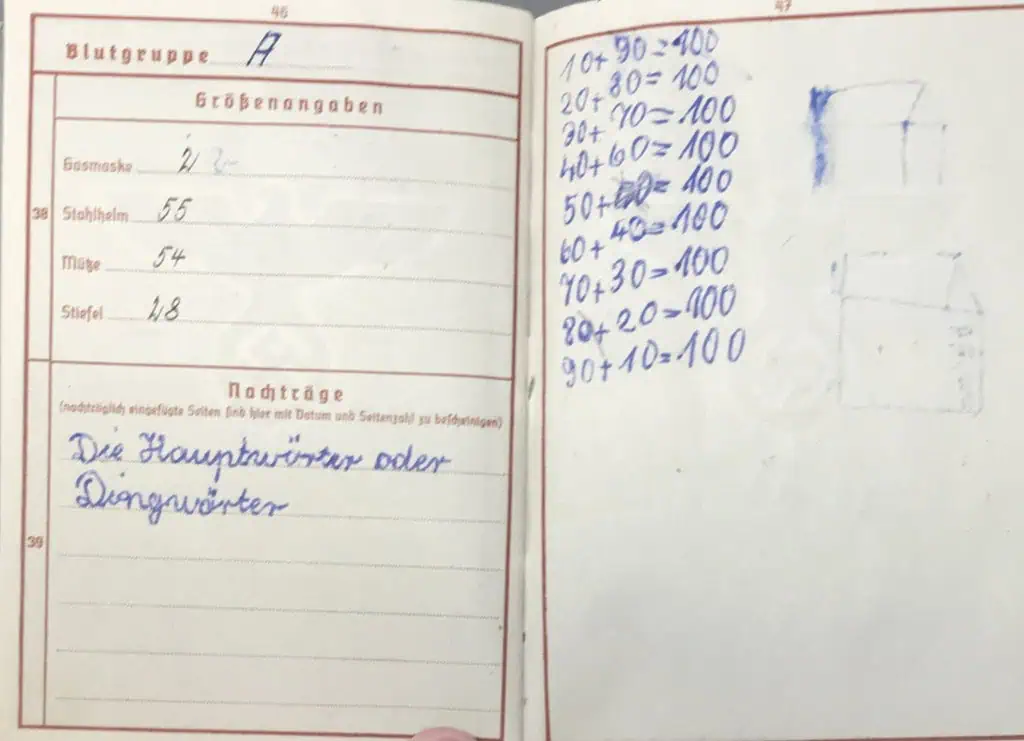 46
Blutgruppe A
Größenangaben
Gasmaske 2
38
Stahlhelm 55
Mütze 54
Stiefel 28
Nachträge
(nachträglich eingefügte Seiten sind hier mit Datum und Seitenzahl zu bescheinigen)
Die Hauptwörter oder
Dingwörter
39
47
10+90=100
20+80=100
30+70=100
40+60=100
50+50=100
60+40=100
70+30=100
80+20=100
90+10=100